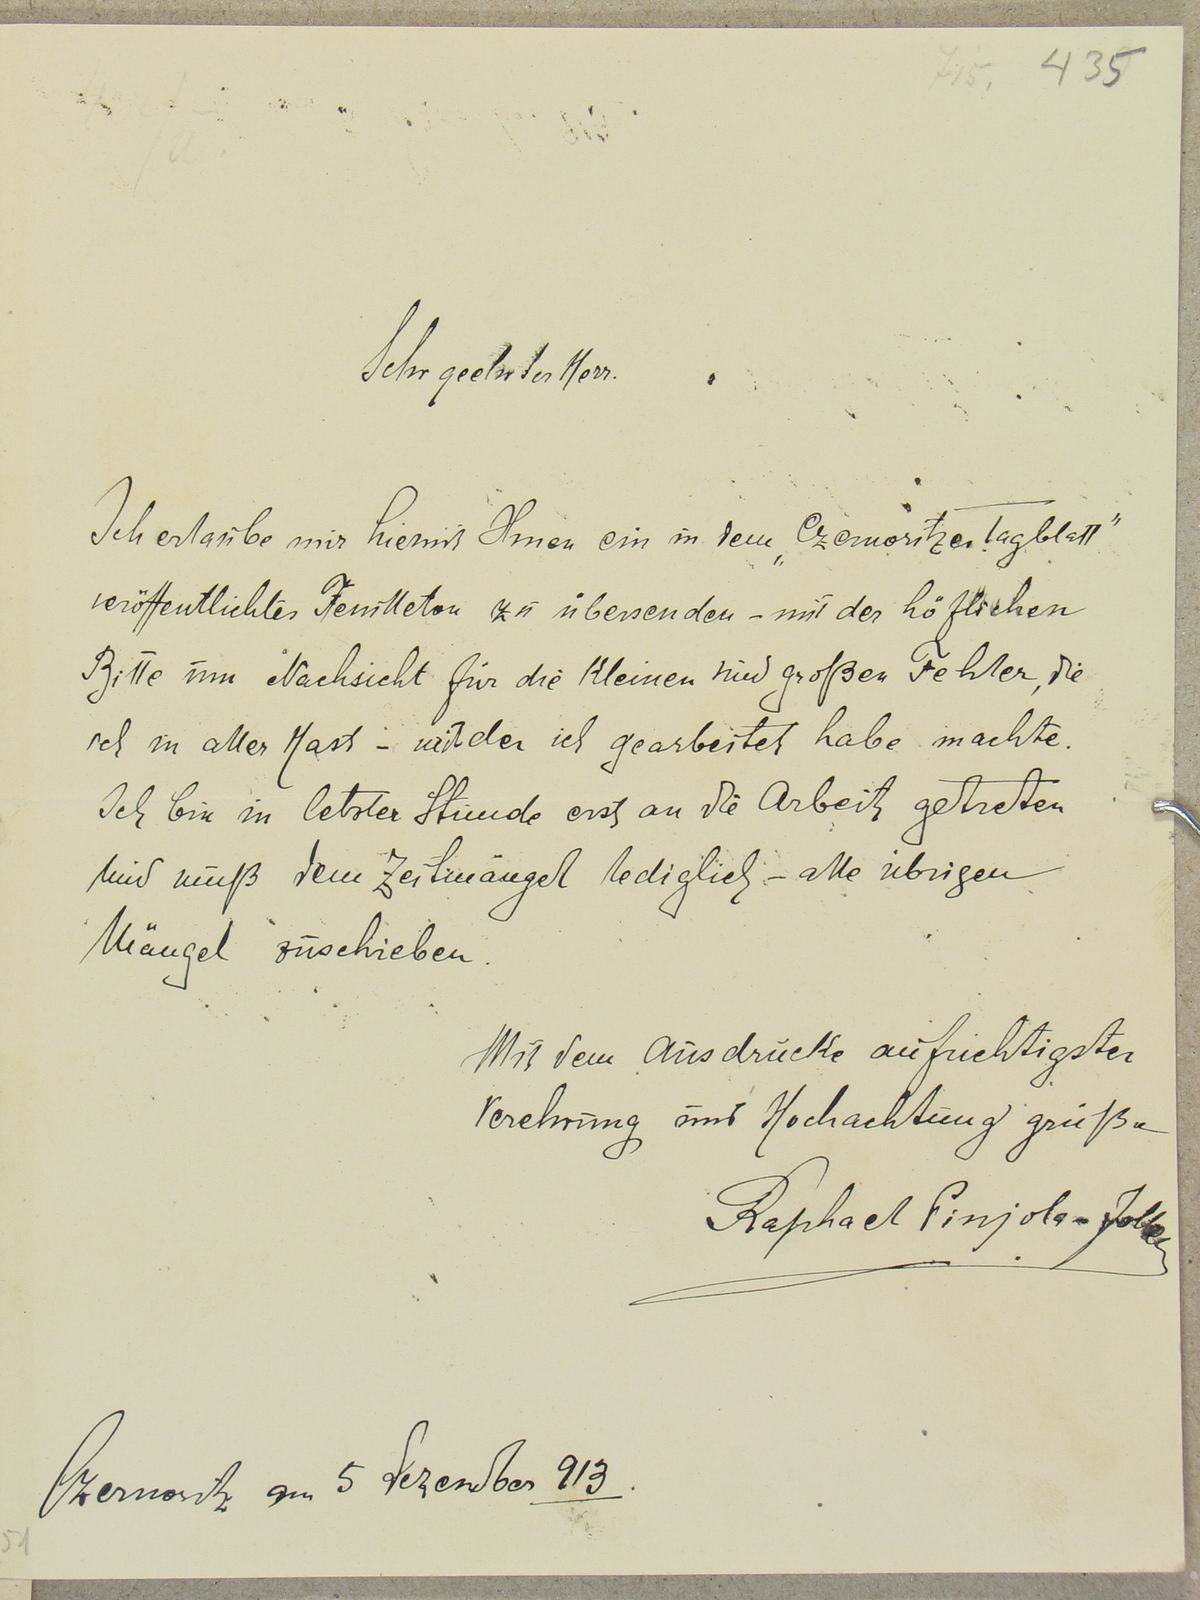 715. 435
Sehr geehrter Herr.
Ich erlaube mir hiemit Ihnen ein in dem „Czernowitzer Tagblatt"
veröffentlichtes Feuilleton zu übersenden – mit der höflichen
Bitte um Nachsicht für die kleinen und großen Fehler, die
ich in aller Hast – mit der ich gearbeitet habe machte.
Ich bin in letzter Stunde erst an die Arbeit getreten
und muß dem Zeitmangel lediglich – alle übrigen
Mängel zuschieben.
Mit dem Ausdrucke aufrichtigster
Verehrung und Hochachtung grüße
Raphael
Czernowitz am 5 Dezember 913.
51